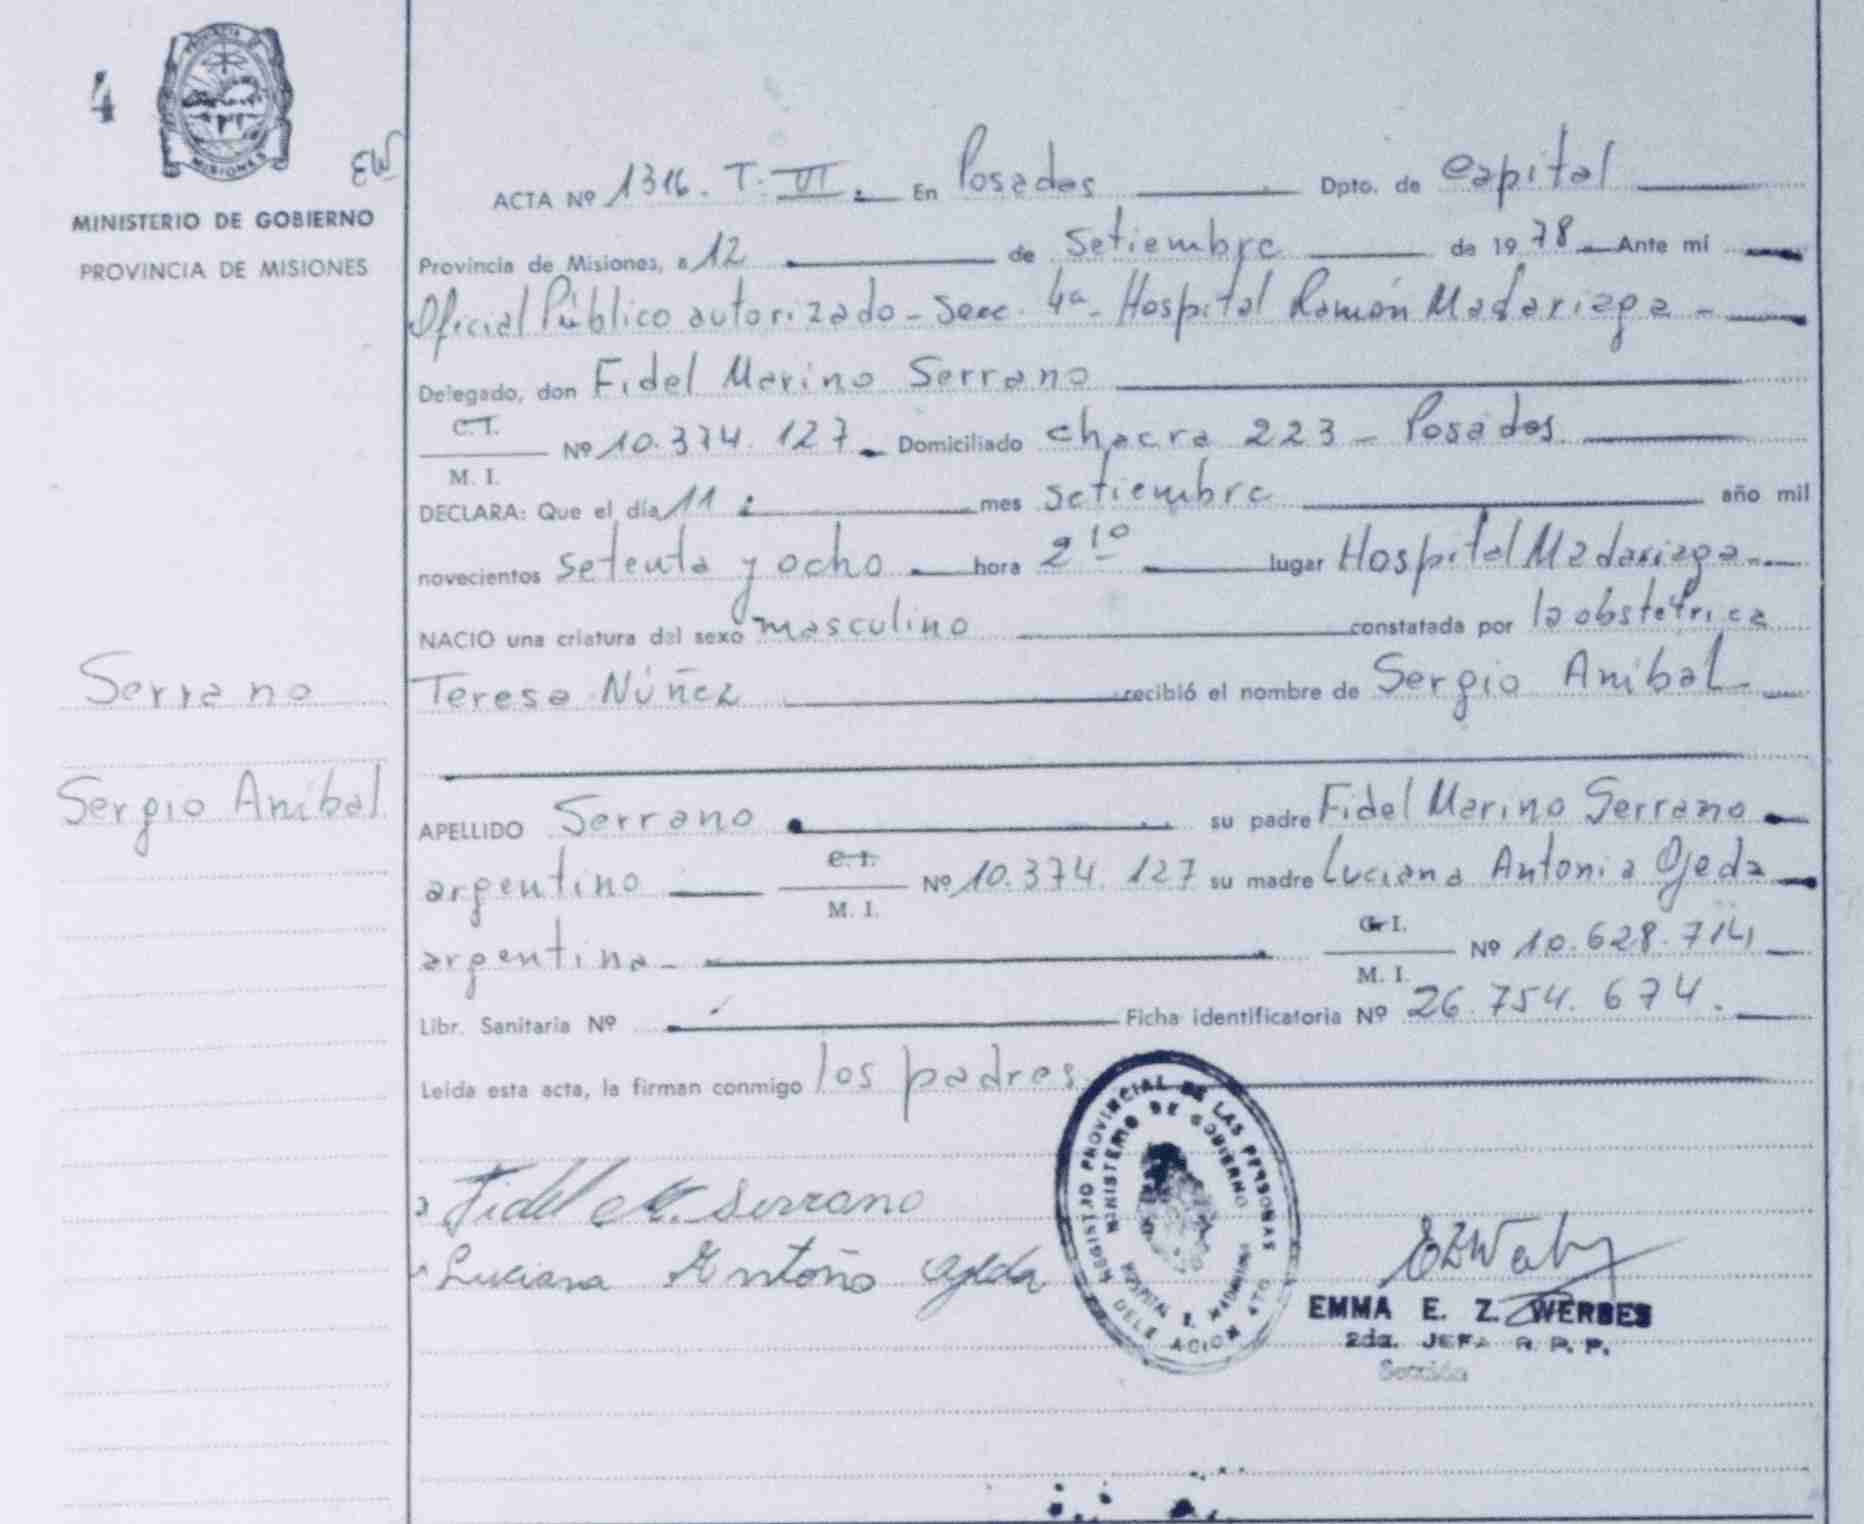 4
PROVINCIA DE
MISIONES
EW
MINISTERIO DE GOBIERNO
PROVINCIA DE MISIONES
Serrano
Sergio Anibal
ACTA Nº 1316. T. VI. En Posadas Dpto. de Capital
Provincia de Misiones, a 12 de Setiembre de 1978 Ante mí
Oficial Público autorizado - Secc. 4a - Hospital Ramón Madariaga -
Delegado, don Fidel Marino Serrano
C.I.
M. I. Nº 10.374.127 Domiciliado chacra 223 - Posadas
DECLARA: Que el día 11 mes setiembre año mil
novecientos setenta y ocho hora 2 10 lugar Hospital Madariaga
NACIO una criatura del sexo masculino constatada por la obstetrica
Teresa Núñez recibió el nombre de Sergio Anibal
APELLIDO Serrano su padre Fidel Marino Serrano
argentino C.I.
M. I. Nº 10.374.127 su madre Luciana Antonia Ojeda
argentina C.I.
M. I. Nº 10.628.714
Libr. Sanitaria Nº Ficha identificatoria Nº 26.754.674.
Leída esta acta, la firman conmigo los padres
Fidel M. Serrano
Luciana Antoño Ojeda
REGISTRO PROVINCIAL DE LAS PERSONAS
MINISTERIO DE GOBIERNO
HOSPITAL R. MADARIAGA
EMMA E. Z. WERBES
2da. JEFA R. P. P.
Sección